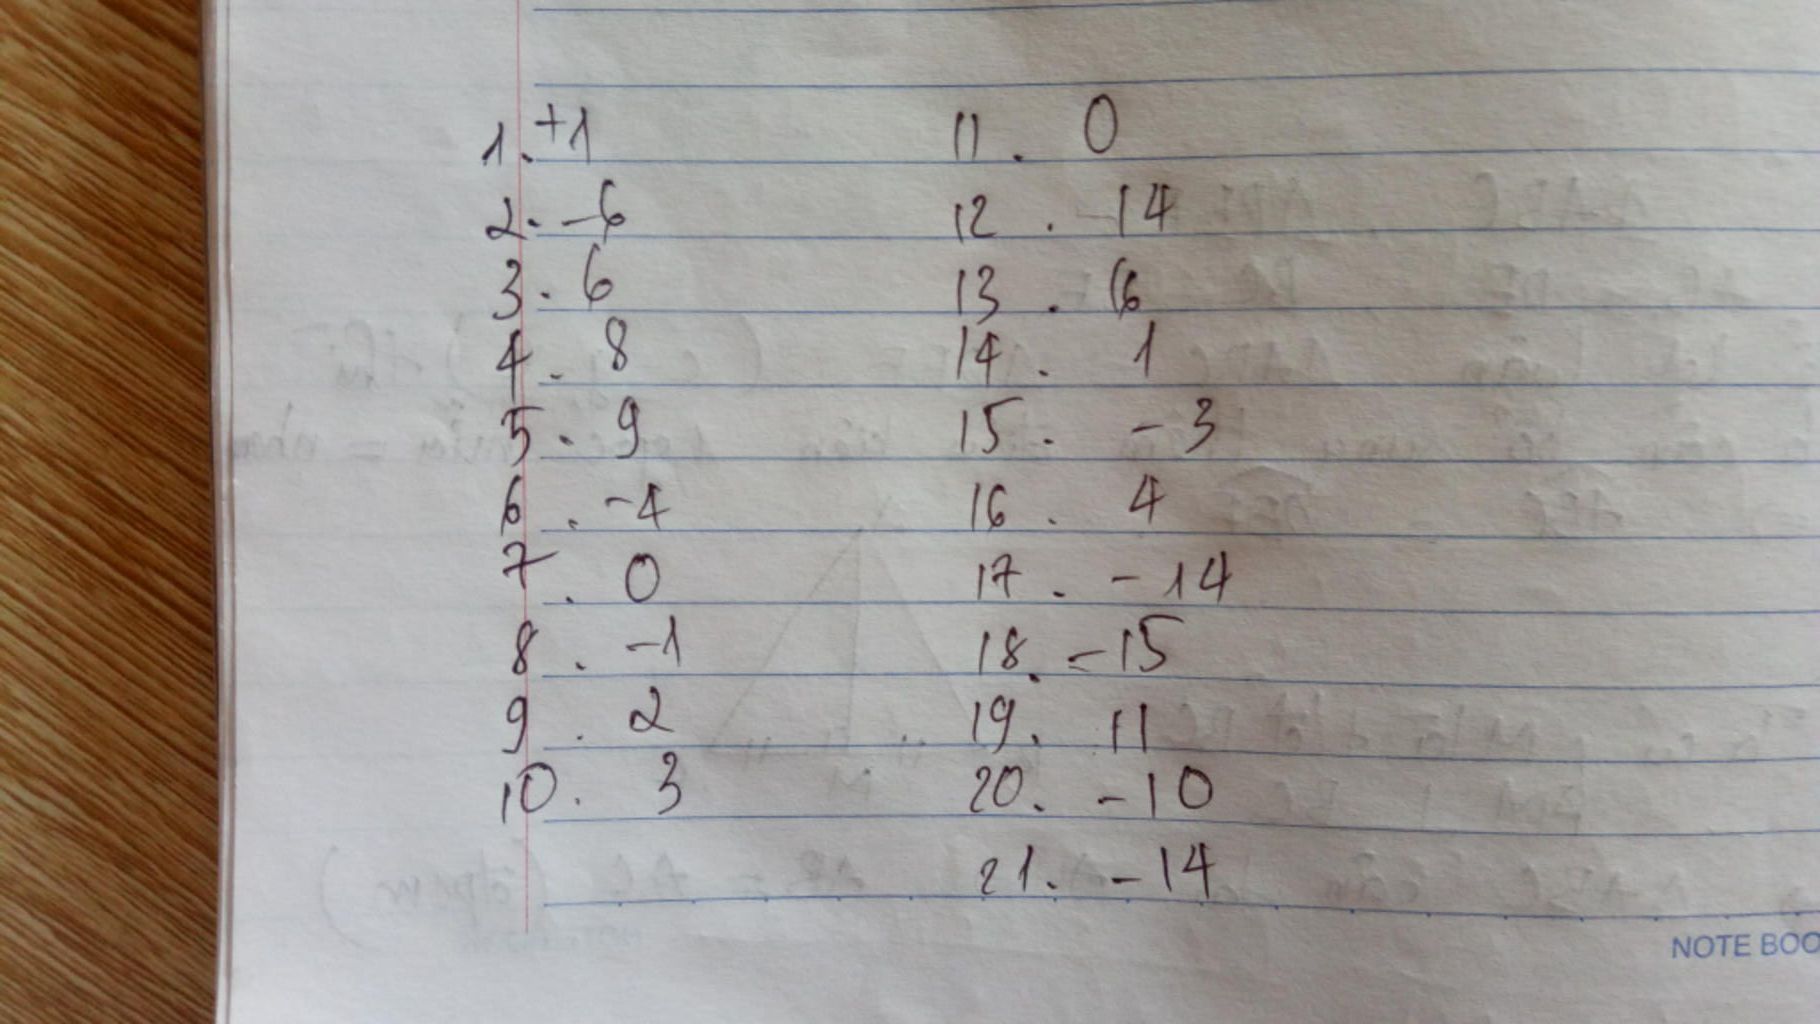 1. +1
2. -6
3. 6
4. 8
5. 9
6. -4
7. 0
8. -1
9. 2
10. 3
11. 0
12. -14
13. 6
14. 1
15. -3
16. 4
17. -14
18. -15
19. 11
20. -10
21. -14